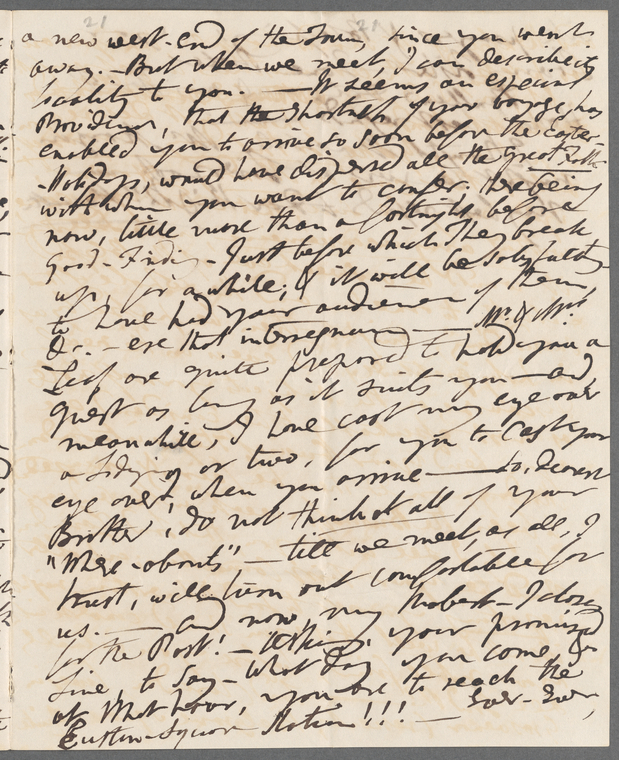 21 21
a new west-end of the Town, since you went
away. - But when we meet, I can describe its
locality to you. — It seems an especial
Providence, that the shortness of your voyage, has
enabled you to arrive so soon before the Easter-
-Holidays, would have dispersed all the great Folks
with whom you want to confer: there being
now, little more than a fortnight before
Good-Friday - Just before which they break
up, for a while; & it will be satisfactory
to have had your audiences of them,
&c. - ere that interregnum — Mr. & Mrs.
are quite prepared to hold you a
guest as long as it suits you — and
meanwhile, I have cast my eye over
a Lodging or two, for you to cast your
eye over, when you arrive — so, dearest
Brother, do not think at all of your
"Where-abouts", - till we meet, as all, I
trust, will turn out comfortable for
us. — And now, my Robert - I close
for the Post! - your promised
Line, to say - what day you come, &
at what hour, you are to reach the
Euston-Square Station!!! — Ever-Ever,